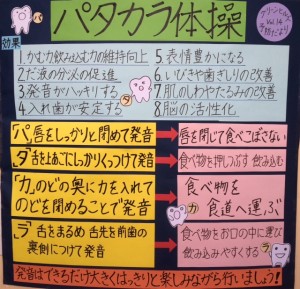 パタカラ体操
グリーンヒルズ
Vol.14
効果
1.かむ力飲み込む力の維持向上
2.だ液の分泌の促進
3.発音がハッキリする
4.入れ歯が安定する
5.表情豊かになる
6.いびきや歯ぎしりの改善
7.肌のしわやたるみの改善
8.脳の活性化
パ
タ
「パ」唇をしっかりと閉めて発音
唇を閉じて食べこぼさない
「タ」舌を上あごにしっかりくっつけて発音
食べ物を押しつぶす 飲み込む
「カ」のどの奥に力を入れて
のどを閉めることで発音
食べ物を
食道へ運ぶ
カ
「ラ」舌をまるめ 舌先を前歯の
裏側につけて発音
食べ物をお口の中に運び
飲み込みやすくする
ラ
発音はできるだけ大きくはっきりと楽しみながら行いましょう!